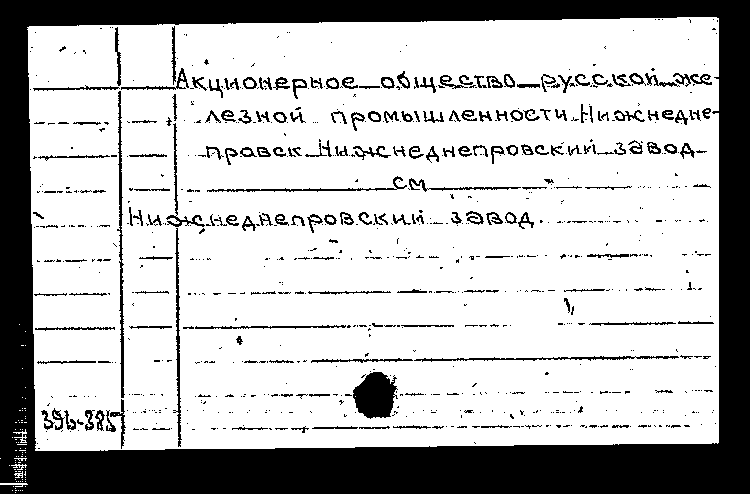 Акционерное общество русской же-
лезной промышленности Нижнедне-
провск Нижнеднепровский завод
см
Нижнеднепровский завод.
396-385